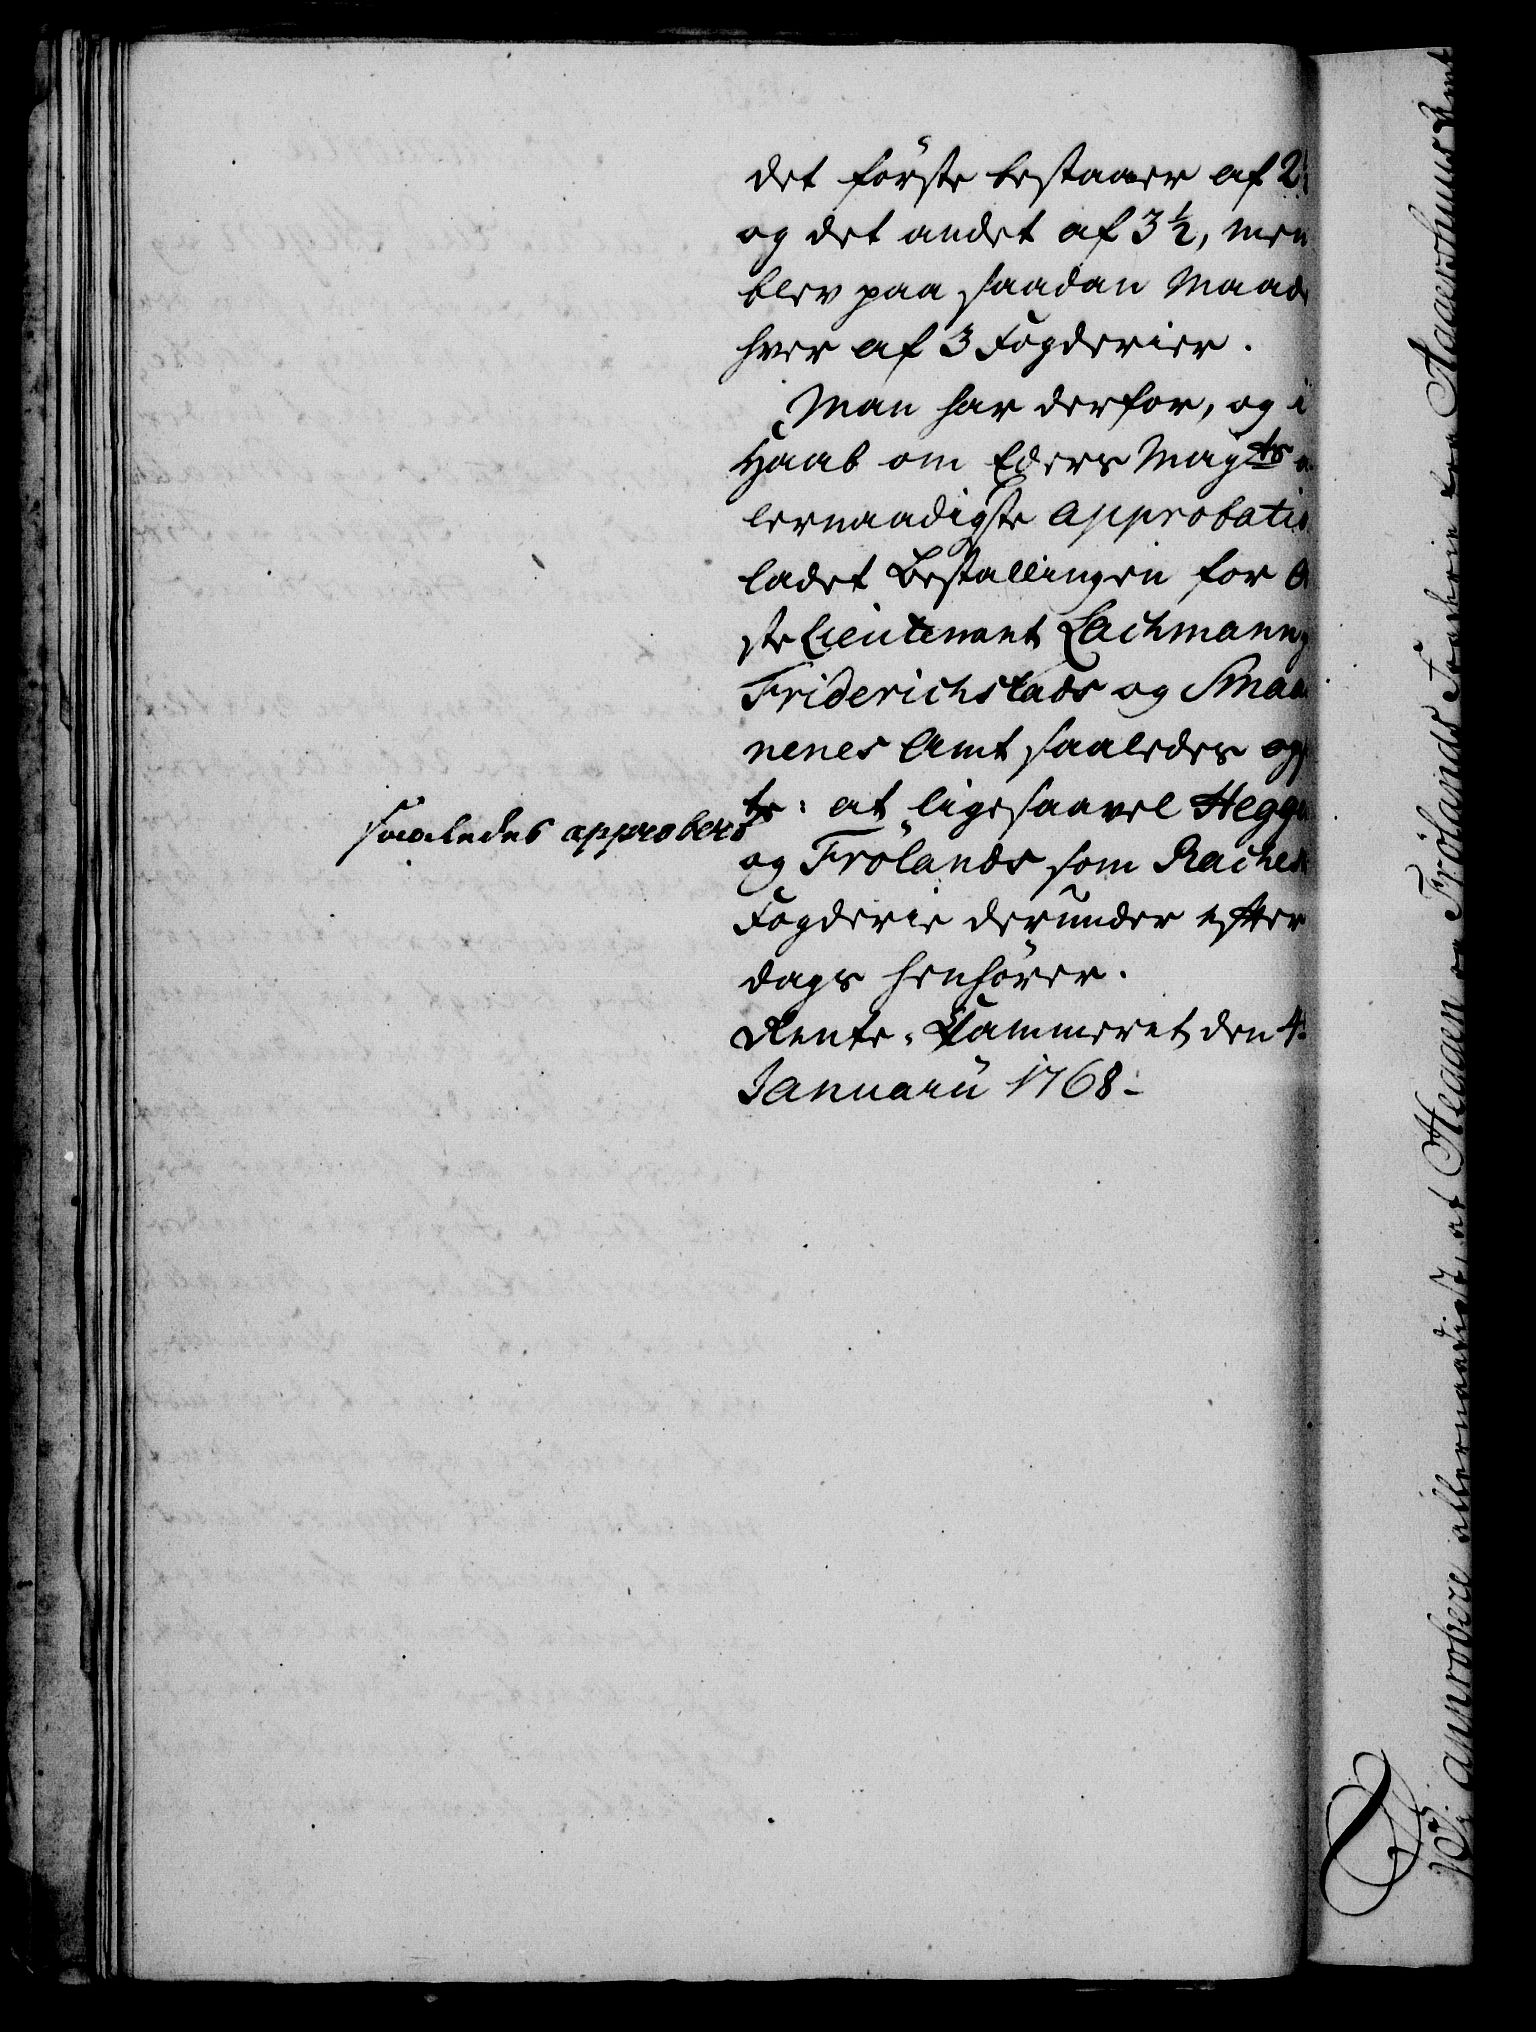 det förste bestaaer af 2½
og det andet af 3½, men
blev paa saadan Maade
hver af 3 Fogderier.
Man har derfor, og i
Haab om Eders Mayts
lernaadigste Approbatio
ladet Bestallingen for
ste Lieutenant Lachmann
Friderichstads og Smaa
nenes Amt saaledes
te: at ligesaavel Hegge
og Frölands som Rache
Fogderie derunder efter
dags henhörer.
Rente-Cammeret den 4
Januarii 1768.
saaledes approbert
Vi approbere allernaadigst, at Heggen og Frölands Fogderie fra Aggershuus Amt